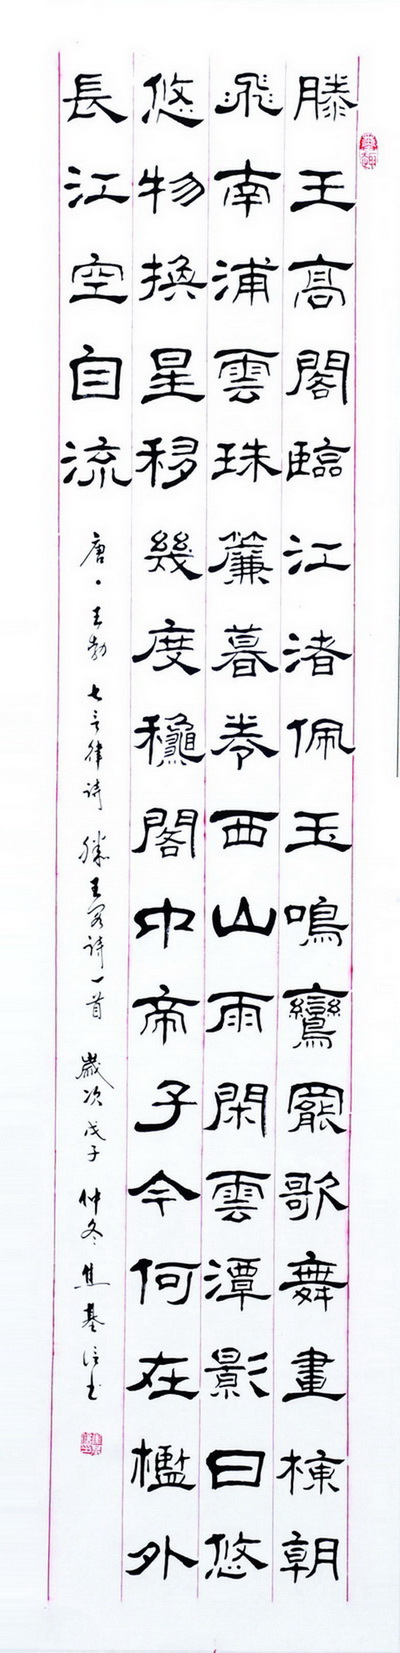 滕王高閣臨江渚佩玉鳴鸞罷歌舞畫棟朝
飛南浦雲珠簾暮卷西山雨閑雲潭影日悠
悠物換星移幾度龝閣中帝子今何在檻外
長江空自流
唐·王勃七言律诗滕王阁诗一首歲次戊子仲冬焦基信书